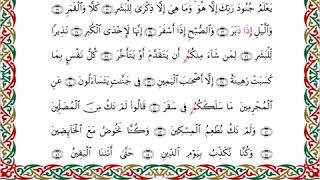 يَعْلَمُ جُنُودَ رَبِّكَ إِلَّا هُوَ وَمَا هِىَ إِلَّا ذِكْرَىٰ لِلْبَشَرِ ۝ كَلَّا وَالْقَمَرِ ۝
وَالَّيْلِ إِذَا دَبَرَ ۝ وَالصُّبْحِ إِذَا أَسْفَرَ ۝ إِنَّهَا لَإِحْدَى الْكُبَرِ ۝ نَذِيرًا
لِّلْبَشَرِ ۝ لِمَن شَاءَ مِنكُمُۥ أَن يَتَقَدَّمَ أَوْ يَتَأَخَّرَ ۝ كُلُّ نَفْسٍ بِمَا
كَسَبَتْ رَهِينَةٌ ۝ إِلَّا أَصْحَابَ الْيَمِينِ ۝ فِى جَنَّتٍ يَتَسَاءَلُونَ ۝ عَنِ
الْمُجْرِمِينَ ۝ مَا سَلَكَكُمُۥ فِى سَقَرَ ۝ قَالُوا لَمْ نَكُ مِنَ الْمُصَلِّينَ
۝ وَلَمْ نَكُ نُطْعِمُ الْمِسْكِينَ ۝ وَكُنَّا نَخُوضُ مَعَ الْخَائِضِينَ
۝ وَكُنَّا نُكَذِّبُ بِيَوْمِ الدِّينِ ۝ حَتَّىٰ أَتَىٰنَا الْيَقِينُ ۝